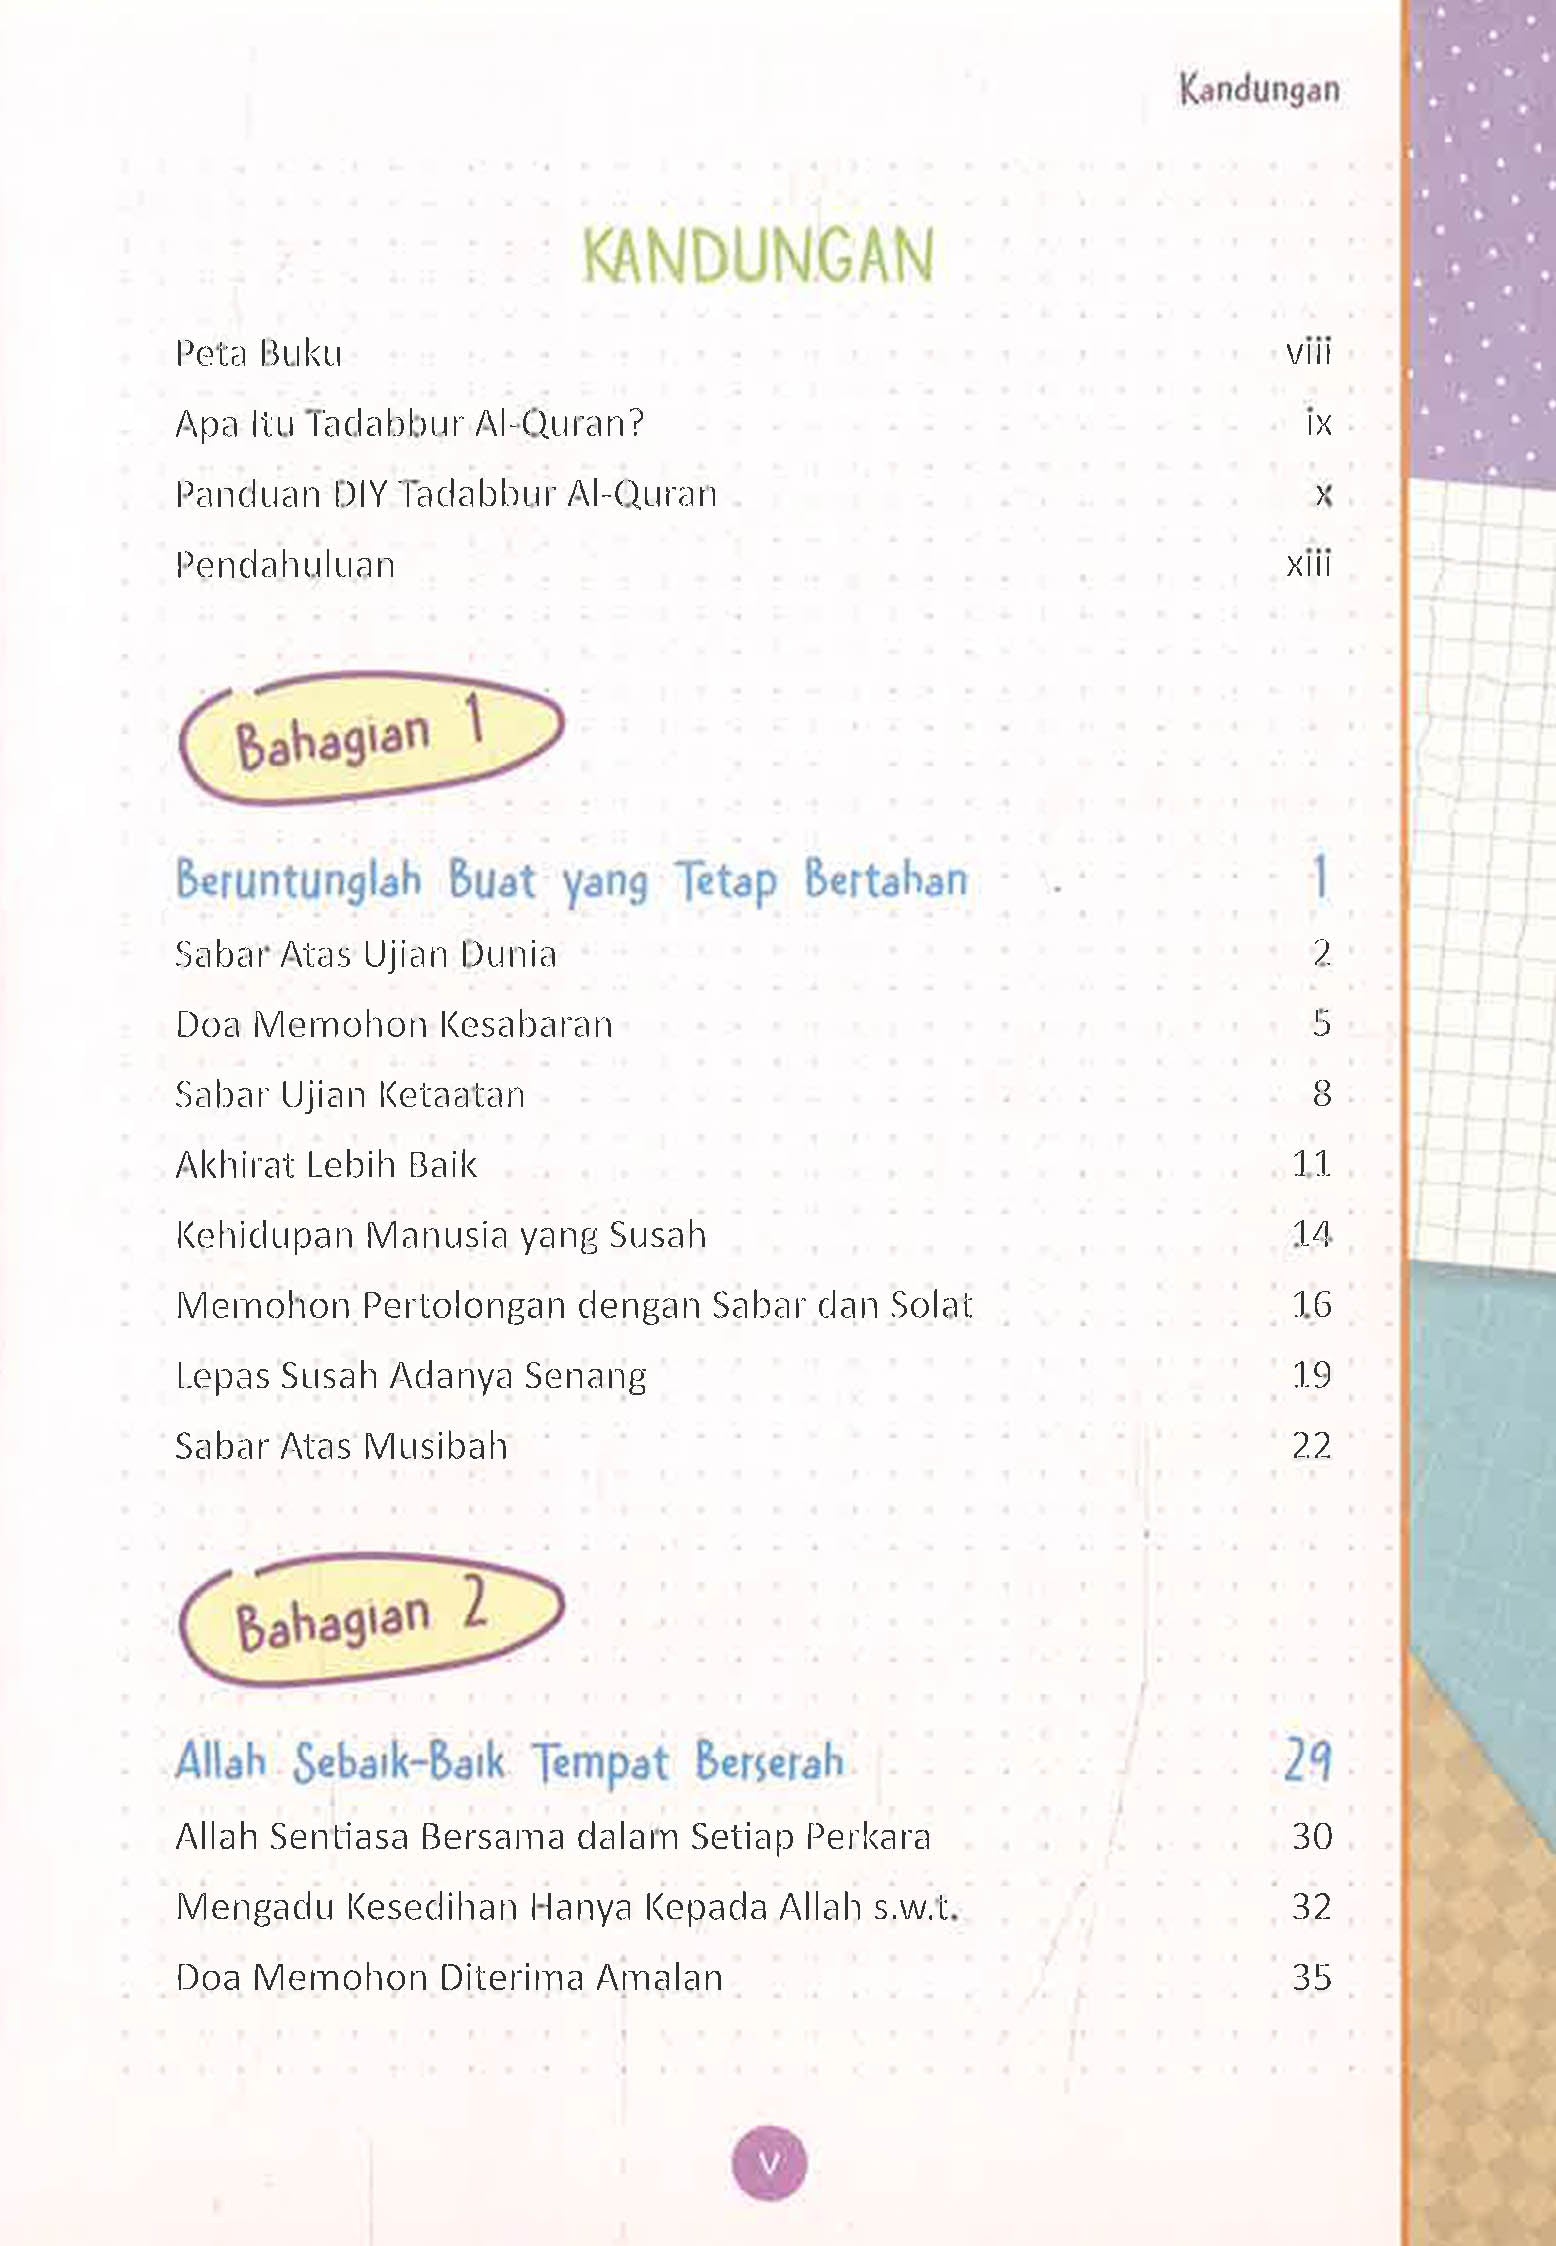 Kandungan
KANDUNGAN
Peta Buku viii
Apa Itu Tadabbur Al-Quran? ix
Panduan DIY Tadabbur Al-Quran x
Pendahuluan xiii
Bahagian 1
Beruntunglah Buat yang Tetap Bertahan 1
Sabar Atas Ujian Dunia 2
Doa Memohon Kesabaran 5
Sabar Ujian Ketaatan 8
Akhirat Lebih Baik 11
Kehidupan Manusia yang Susah 14
Memohon Pertolongan dengan Sabar dan Solat 16
Lepas Susah Adanya Senang 19
Sabar Atas Musibah 22
Bahagian 2
Allah Sebaik-Baik Tempat Berserah 29
Allah Sentiasa Bersama dalam Setiap Perkara 30
Mengadu Kesedihan Hanya Kepada Allah s.w.t. 32
Doa Memohon Diterima Amalan 35
v